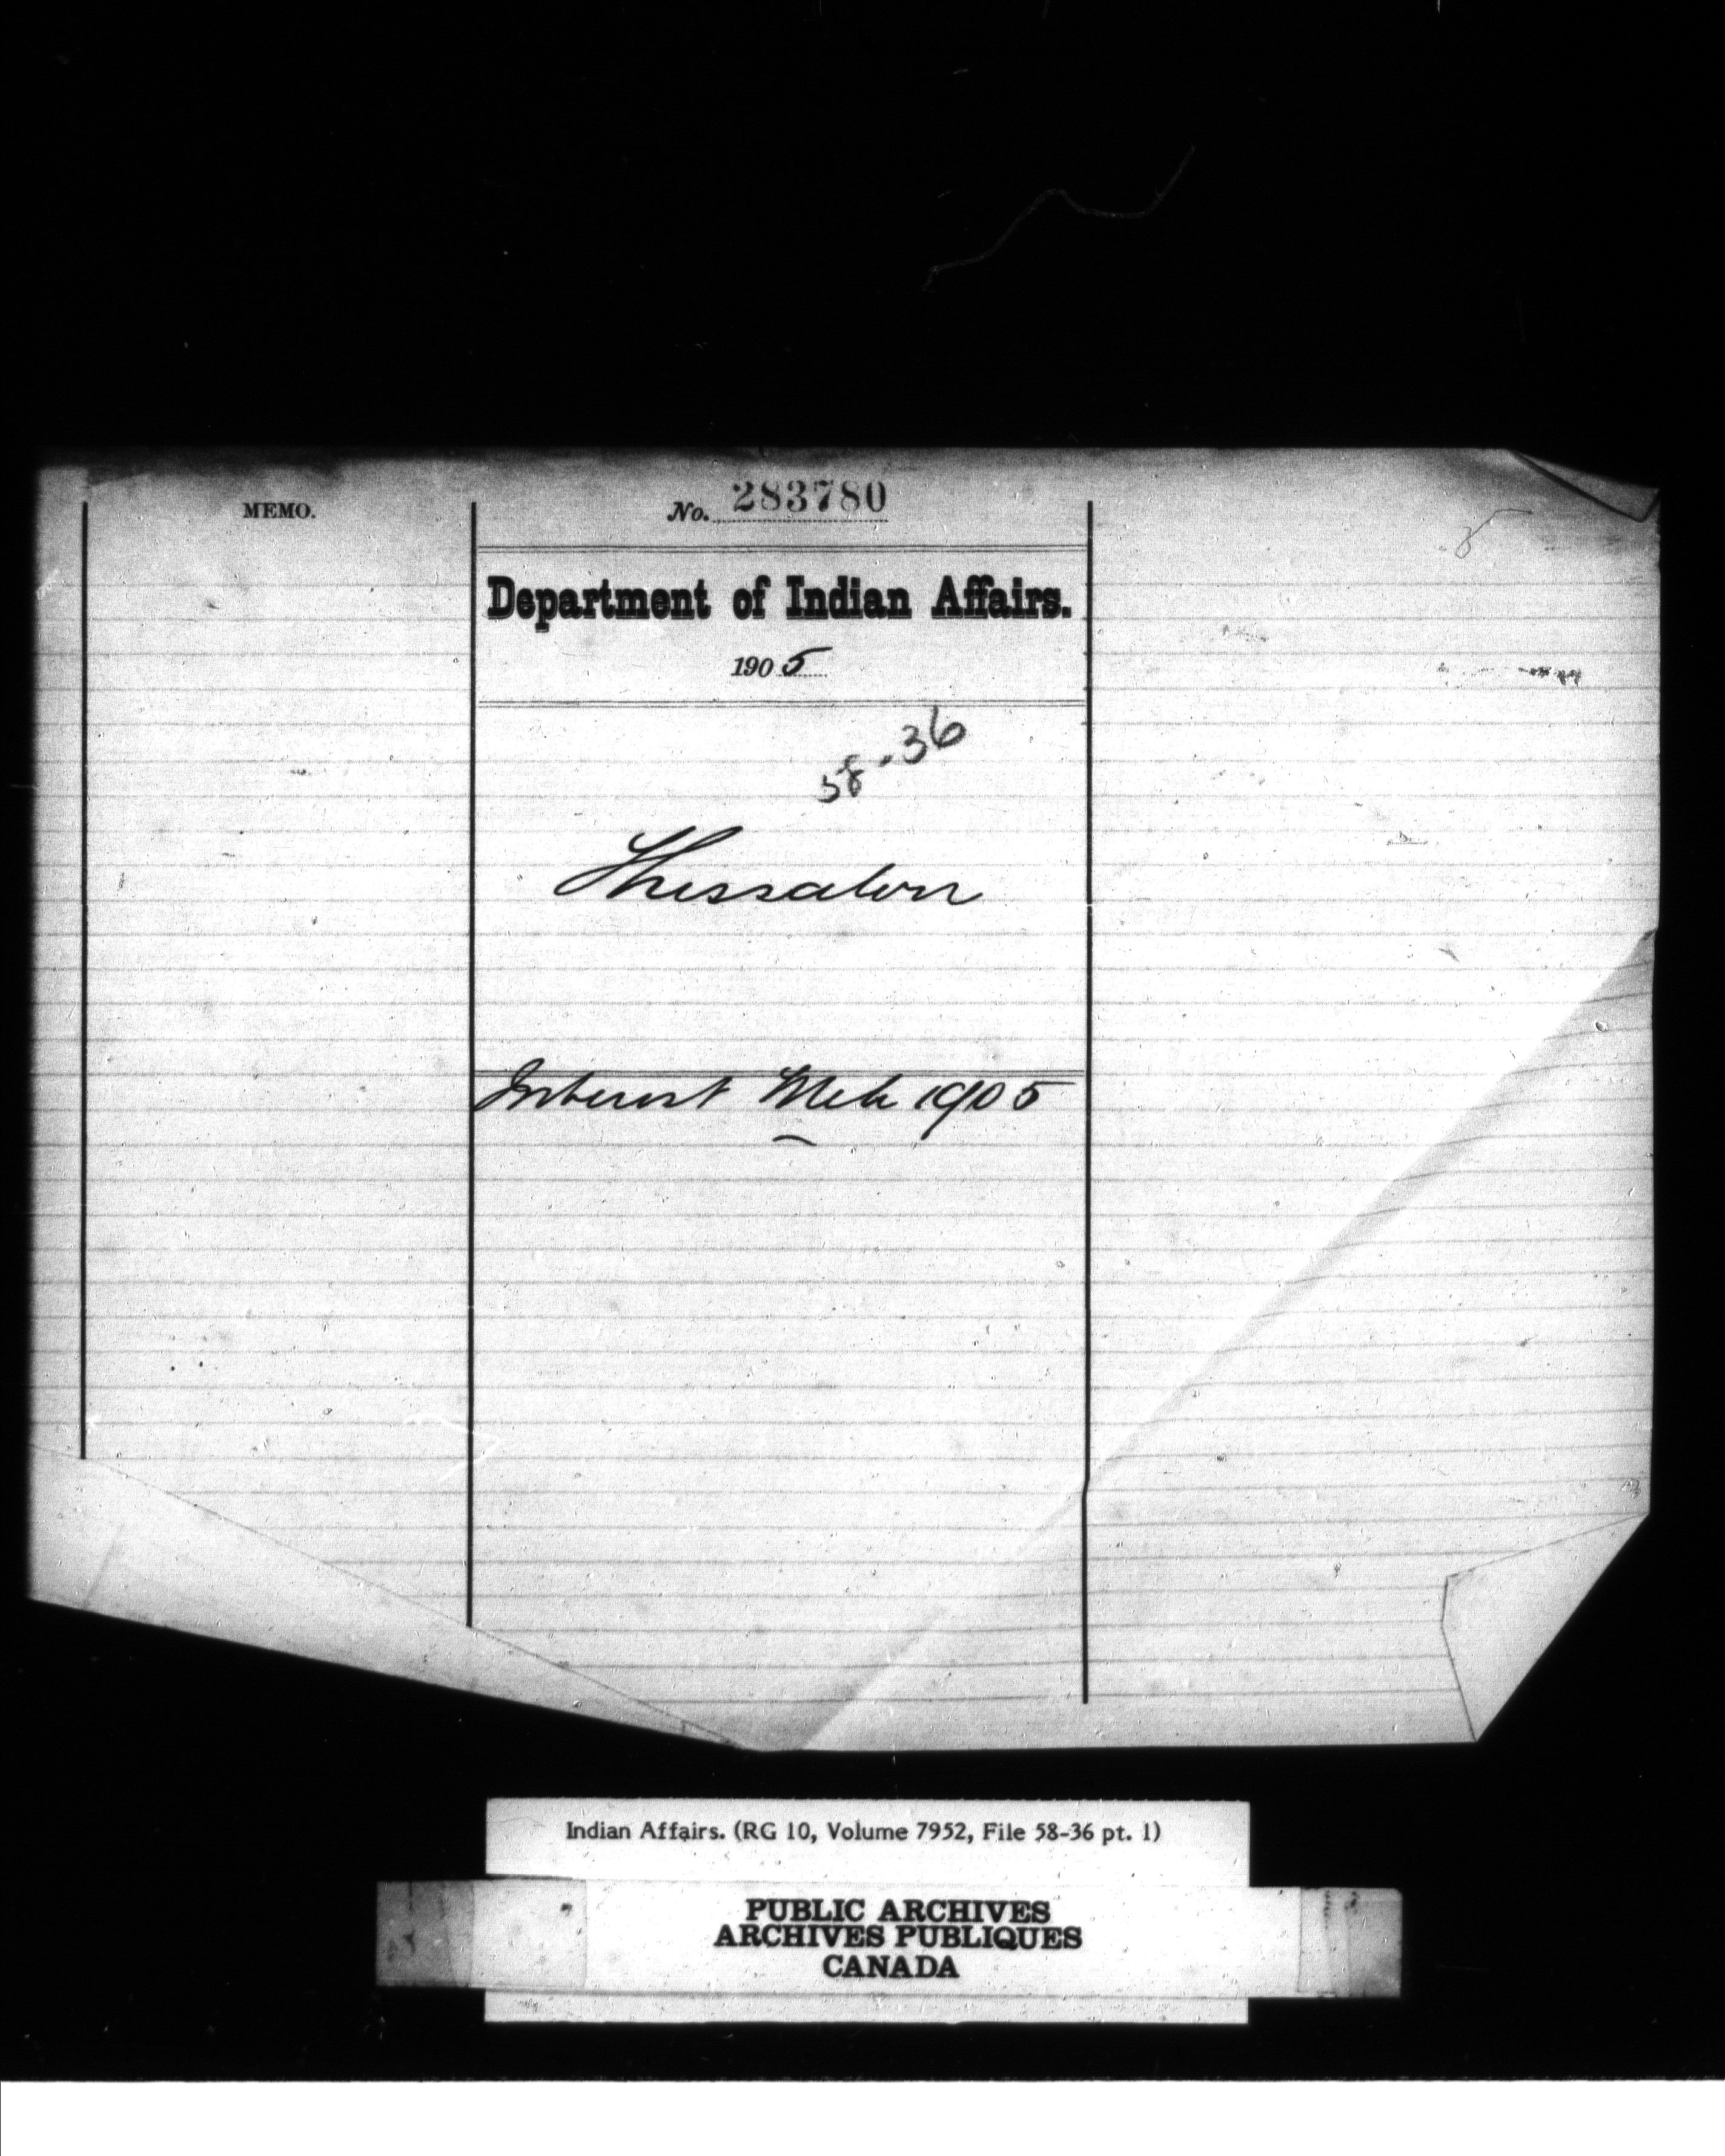 MEMO.
No. 283780
Department of Indian Affairs.
1905
58-36
Thessalon
Interest Mch 1905
Indian Affairs. (RG 10, Volume 7952, File 58-36 pt. 1)
PUBLIC ARCHIVES
ARCHIVES PUBLIQUES
CANADA